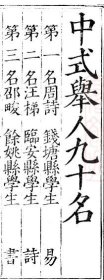 中式舉人九十名
第一名周詩 錢塘縣學生 易
第二名汪梯 臨安縣學生 詩
第三名邵畯 餘姚縣學生 書